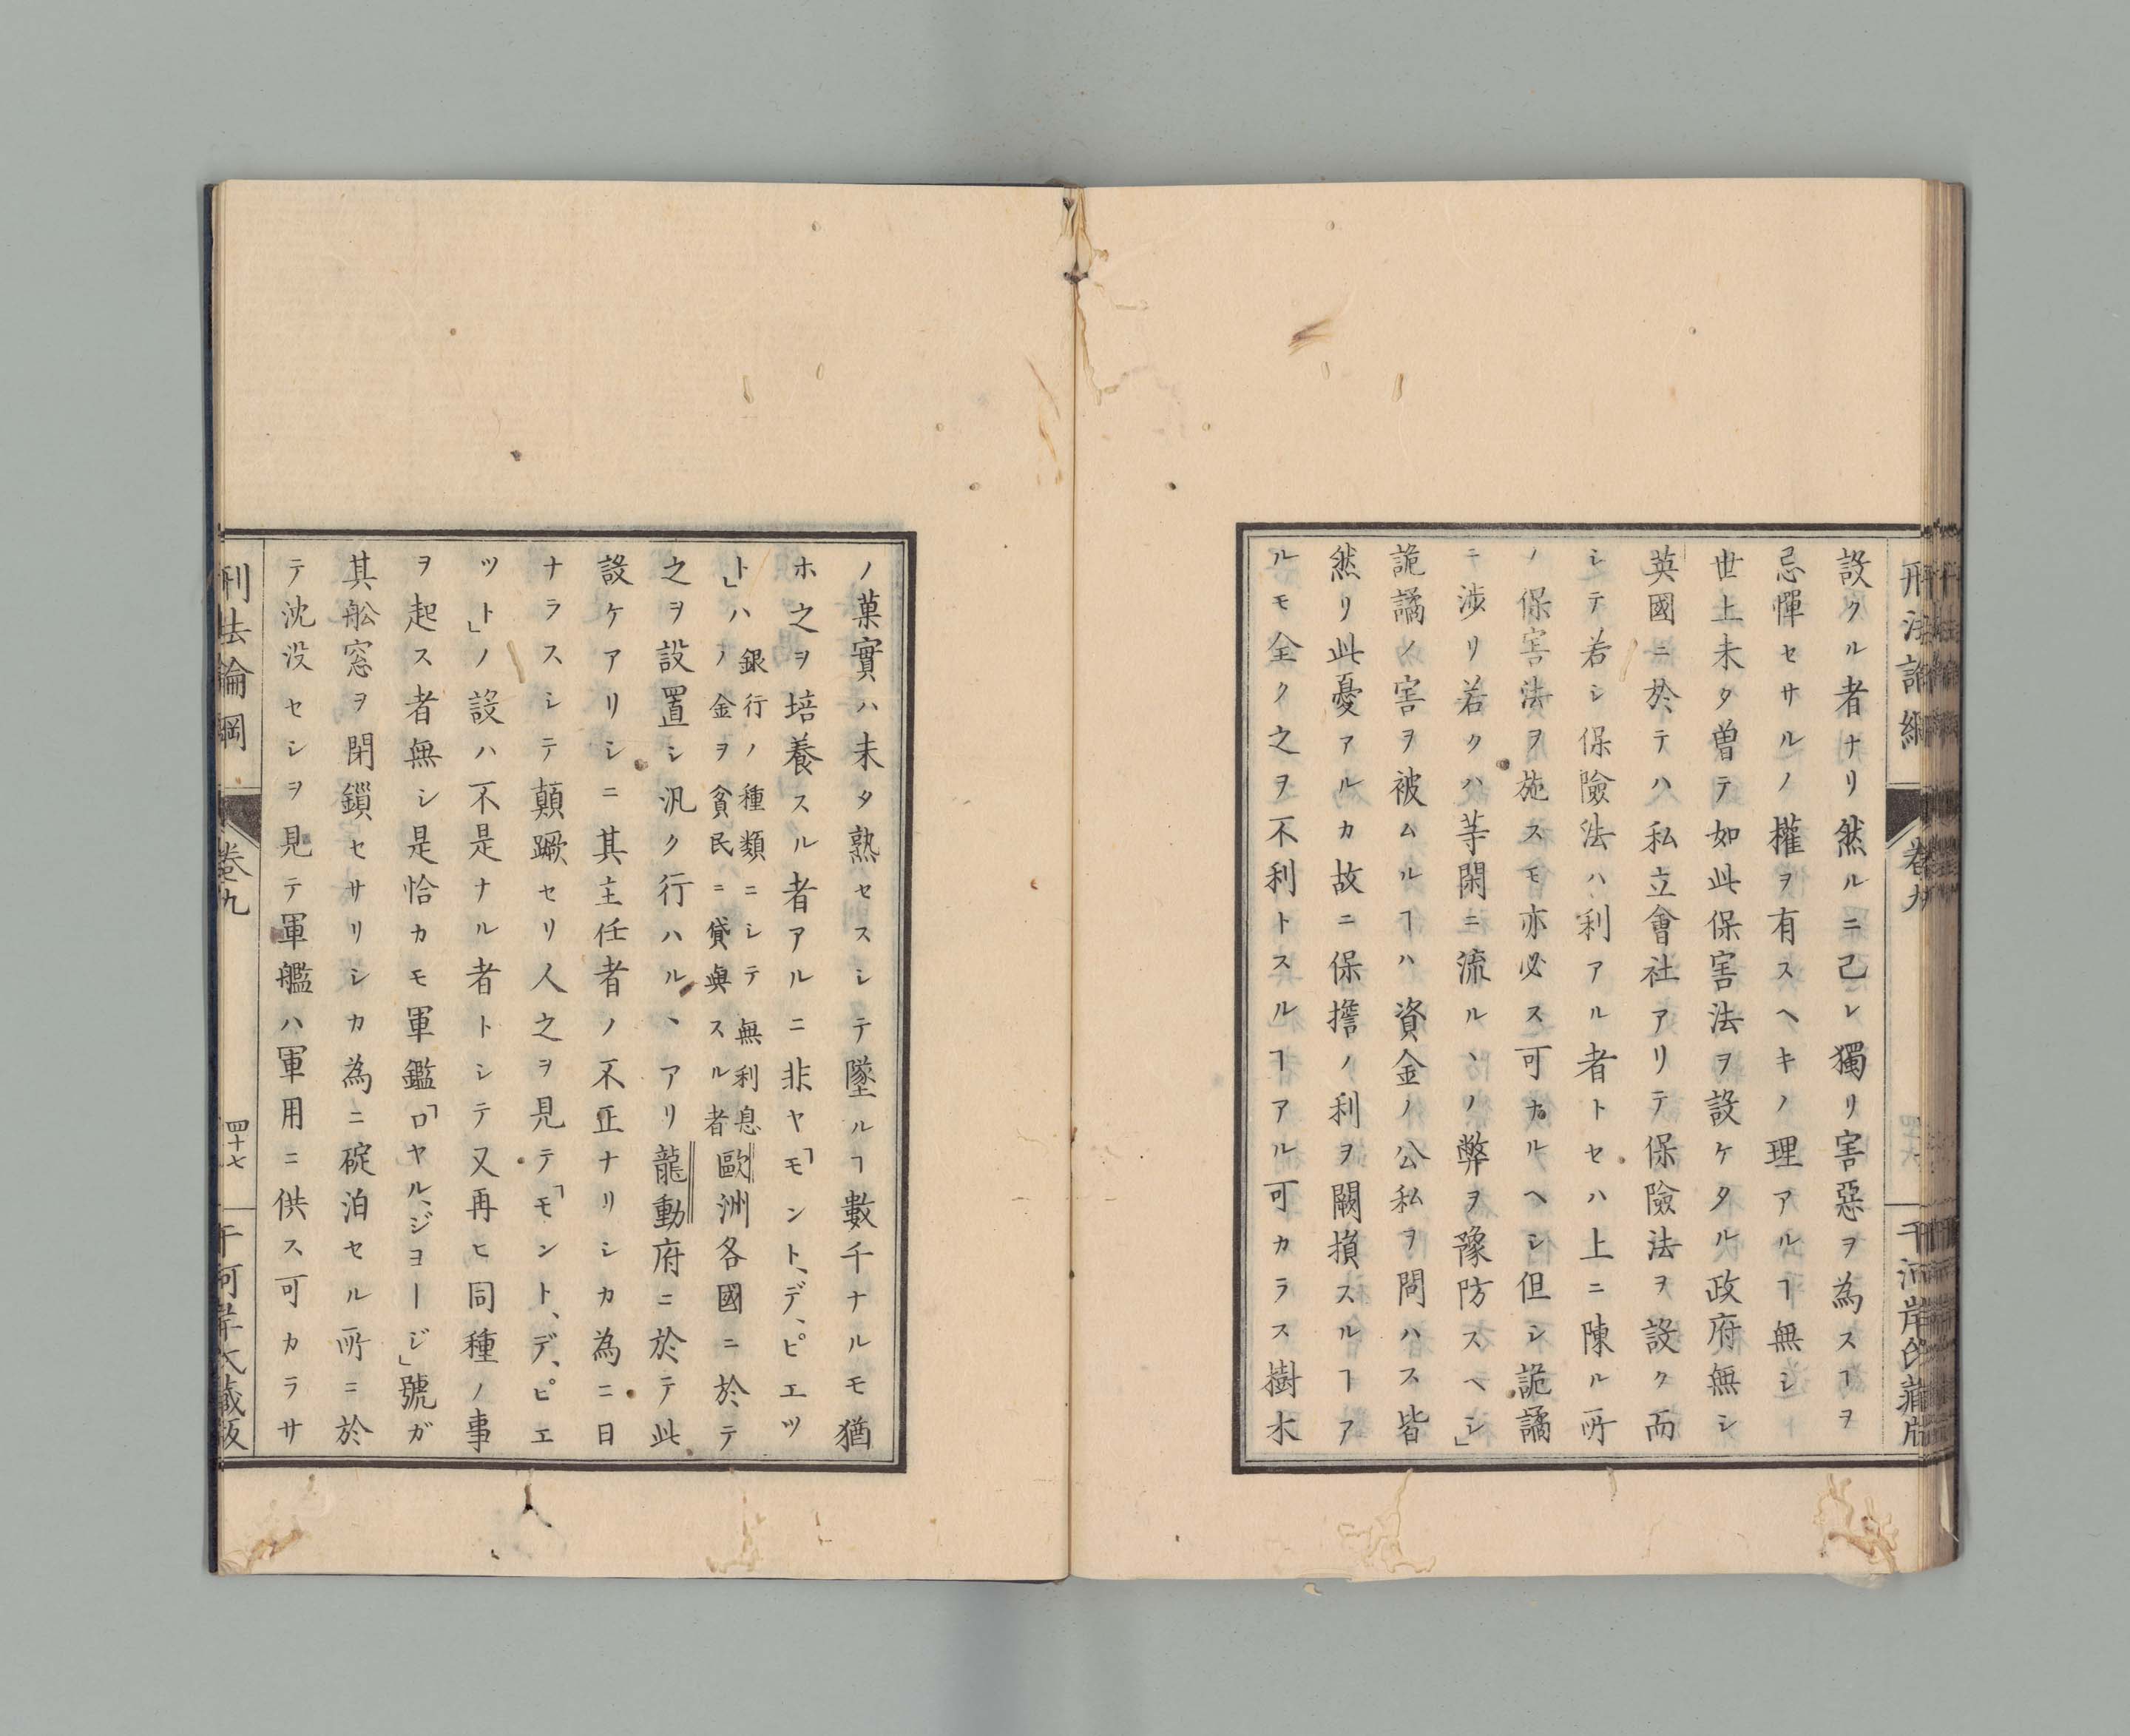 刑法論綱 卷九 四十六 千河岸氏藏版
設クル者ナリ然ルニ己レ獨リ害惡ヲ為スヿヲ
忌憚セサルノ權ヲ有スヘキノ理アルヿ無シ
世上未タ曽テ如此保害法ヲ設ケタル政府無シ
英國ニ於テハ私立會社アリテ保險法ヲ設ク而
シテ若シ保險法ハ利アル者トセハ上ニ陳ル所
ノ保害法ヲ施スモ亦必ス可ナルヘシ但シ詭譎
ニ渉リ若クハ等閑ニ流ルヽノ弊ヲ豫防スヘシ」
詭譎ノ害ヲ被ムルヿハ資金ノ公私ヲ問ハス皆
然リ此憂アルカ故ニ保擔ノ利ヲ闕損スルヿア
ルモ全ク之ヲ不利トスルヿアル可カラス樹木
ノ菓實ハ未タ熟セスシテ墜ルヿ數千ナルモ猶
ホ之ヲ培養スル者アルニ非ヤ「モント、デ、ピエツ
ト」ハ銀行ノ種類ニシテ無利息ノ金ヲ貧民ニ貸與スル者歐洲各國ニ於テ
之ヲ設置シ汎ク行ハルヽアリ龍動府ニ於テ此
設ケアリシニ其主任者ノ不正ナリシカ為ニ日
ナラスシテ顛蹶セリ人之ヲ見テ「モント、デ、ピエ
ツト」ノ設ハ不是ナル者トシテ又再ヒ同種ノ事
ヲ起ス者無シ是恰カモ軍鑑「ロヤル、ジヨージ」號ガ
其舩窓ヲ閉鎻セサリシカ為ニ碇泊セル所ニ於
テ沈没セシヲ見テ軍艦ハ軍用ニ供ス可カラサ
刑法論綱 卷九 四十七 千河岸氏藏版